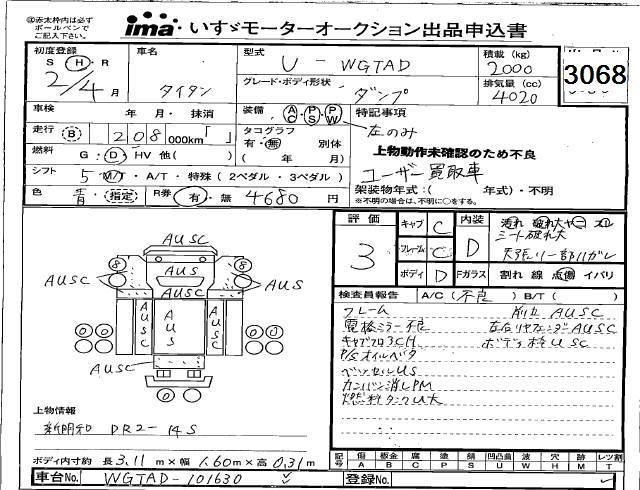 ◎赤太枠内は必ず ボールペンで ご記入下さい。
ima いすゞモーターオークション出品申込書
初度登録 S・H・R 2/4 月
車名 タイタン
型式 U - WGTAD
グレード・ボディ形状 ダンプ
積載(kg) 2000
排気量(cc) 4020
3068
車検 年・月・抹消
装備 AC PS PW
特記事項
左のみ
走行 B 208 000km「 」
タコグラフ 有・無 別体 ( 年 月)
上物動作未確認のため不良
燃料 G・D・HV 他( )
ユーザー買取車
シフト 5 M/T・A/T・特殊(2ペダル・3ペダル)
架装物年式:( 年式)・不明
※不明の場合は、不明に○をする。
色 青・指定 R券 有・無 4680 円
評価 3
キャブ C
フレーム C
ボディ D
内装 D
Fガラス 割れ 線 点傷 イバリ
シート破れ大
天張リ一部ハガレ
検査員報告 A/C(不良) B/T( )
フレーム
電格ミラー不良
キャブフロ3CH
P/Sオイルベタ
カンバン消しPM
燃料タンクU大
AUSC
AUSC AUS AUS
AUSC
AUSC AUS AUSC
AUSC
上物情報
新明和 DR2-14S
ボディ内寸約 長 3.11 m×幅 1.60 m×高 0.31 m
記号 傷 A 板金 B 腐 C 塗 P 錆 S 凹凸曲 U 波 W 穴 H 跡 M レツ割 T
車台No. WGTAD-101630
登録No.